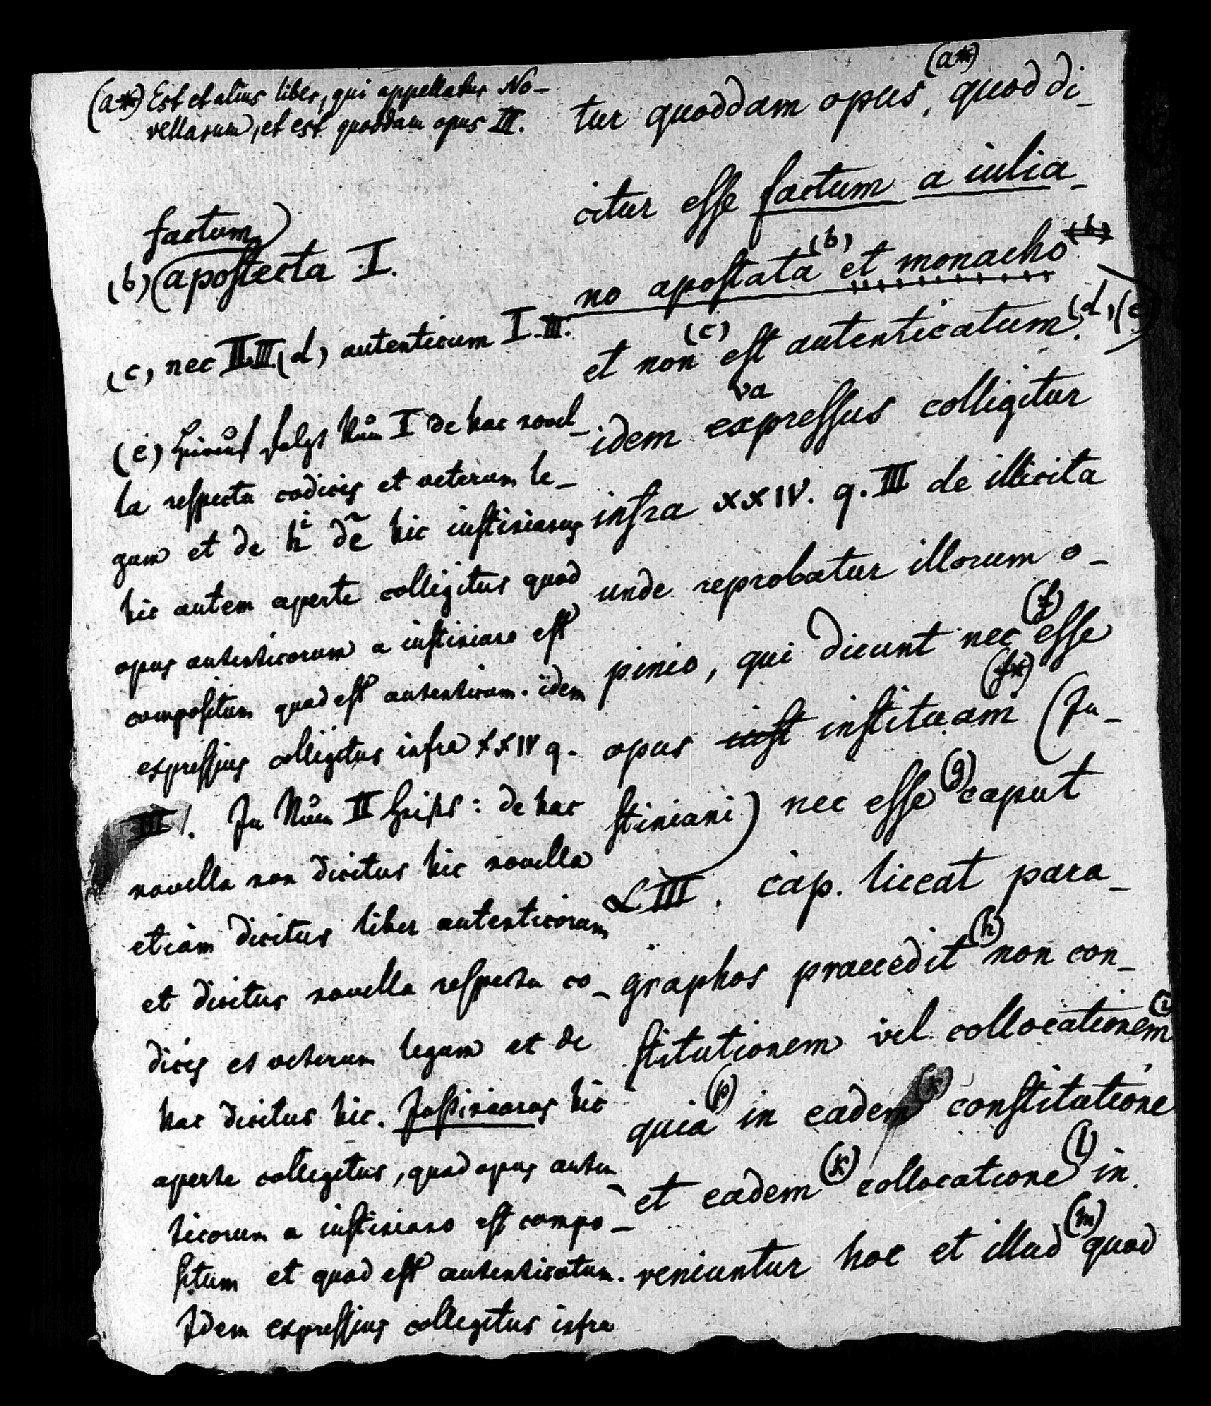 (a*) Est et alius liber, qui appellatur No-
vellarum, et est quoddam opus III.
factum
(b) apostecta I.
(c) nec II.III (d) autenticum I. III.
(e) folgt Num I de hac novel-
la respectu codicis et veterum le-
gum et de h de hic iustinianus
hic autem aperte colligitur quod
opus autenticorum a iustiniano est
compositum quod est autenticum. idem
expressius colligitur infra XXIV q.
III. In Num II heißts: de hac
novella non dicitur hic novella
etiam dicitur liber autenticorum
et dicitur novella respectu co-
dicis et veterum legum et de
hac dicitur hic. Justinianus hic
aperte collegitur, quod opus auten-
ticorum a iustiniano est compo-
situm et quod est autenticatum.
Idem expressius collegitur infra
tur quoddam opus (a*), quod di-
citur esse factum a iulia-
no apostata (b) et monacho (b)
et non (c) est autenticatum. (d), (e)
idem expressus va colligitur
infra XXIV. q. III de illicita
unde reprobatur illorum o-
pinio, qui dicunt nec (f) esse
opus iust instituam (f*) (Ju-
stiniani) nec esse (g) caput
LIII. cap. liceat para-
graphos praecedit (h) non con-
stitutionem vel collocationem (i)
quia (p) in eadem (x) constitutione
et eadem (k) collocatione (l) in
veniuntur hoc et illud (m) quod